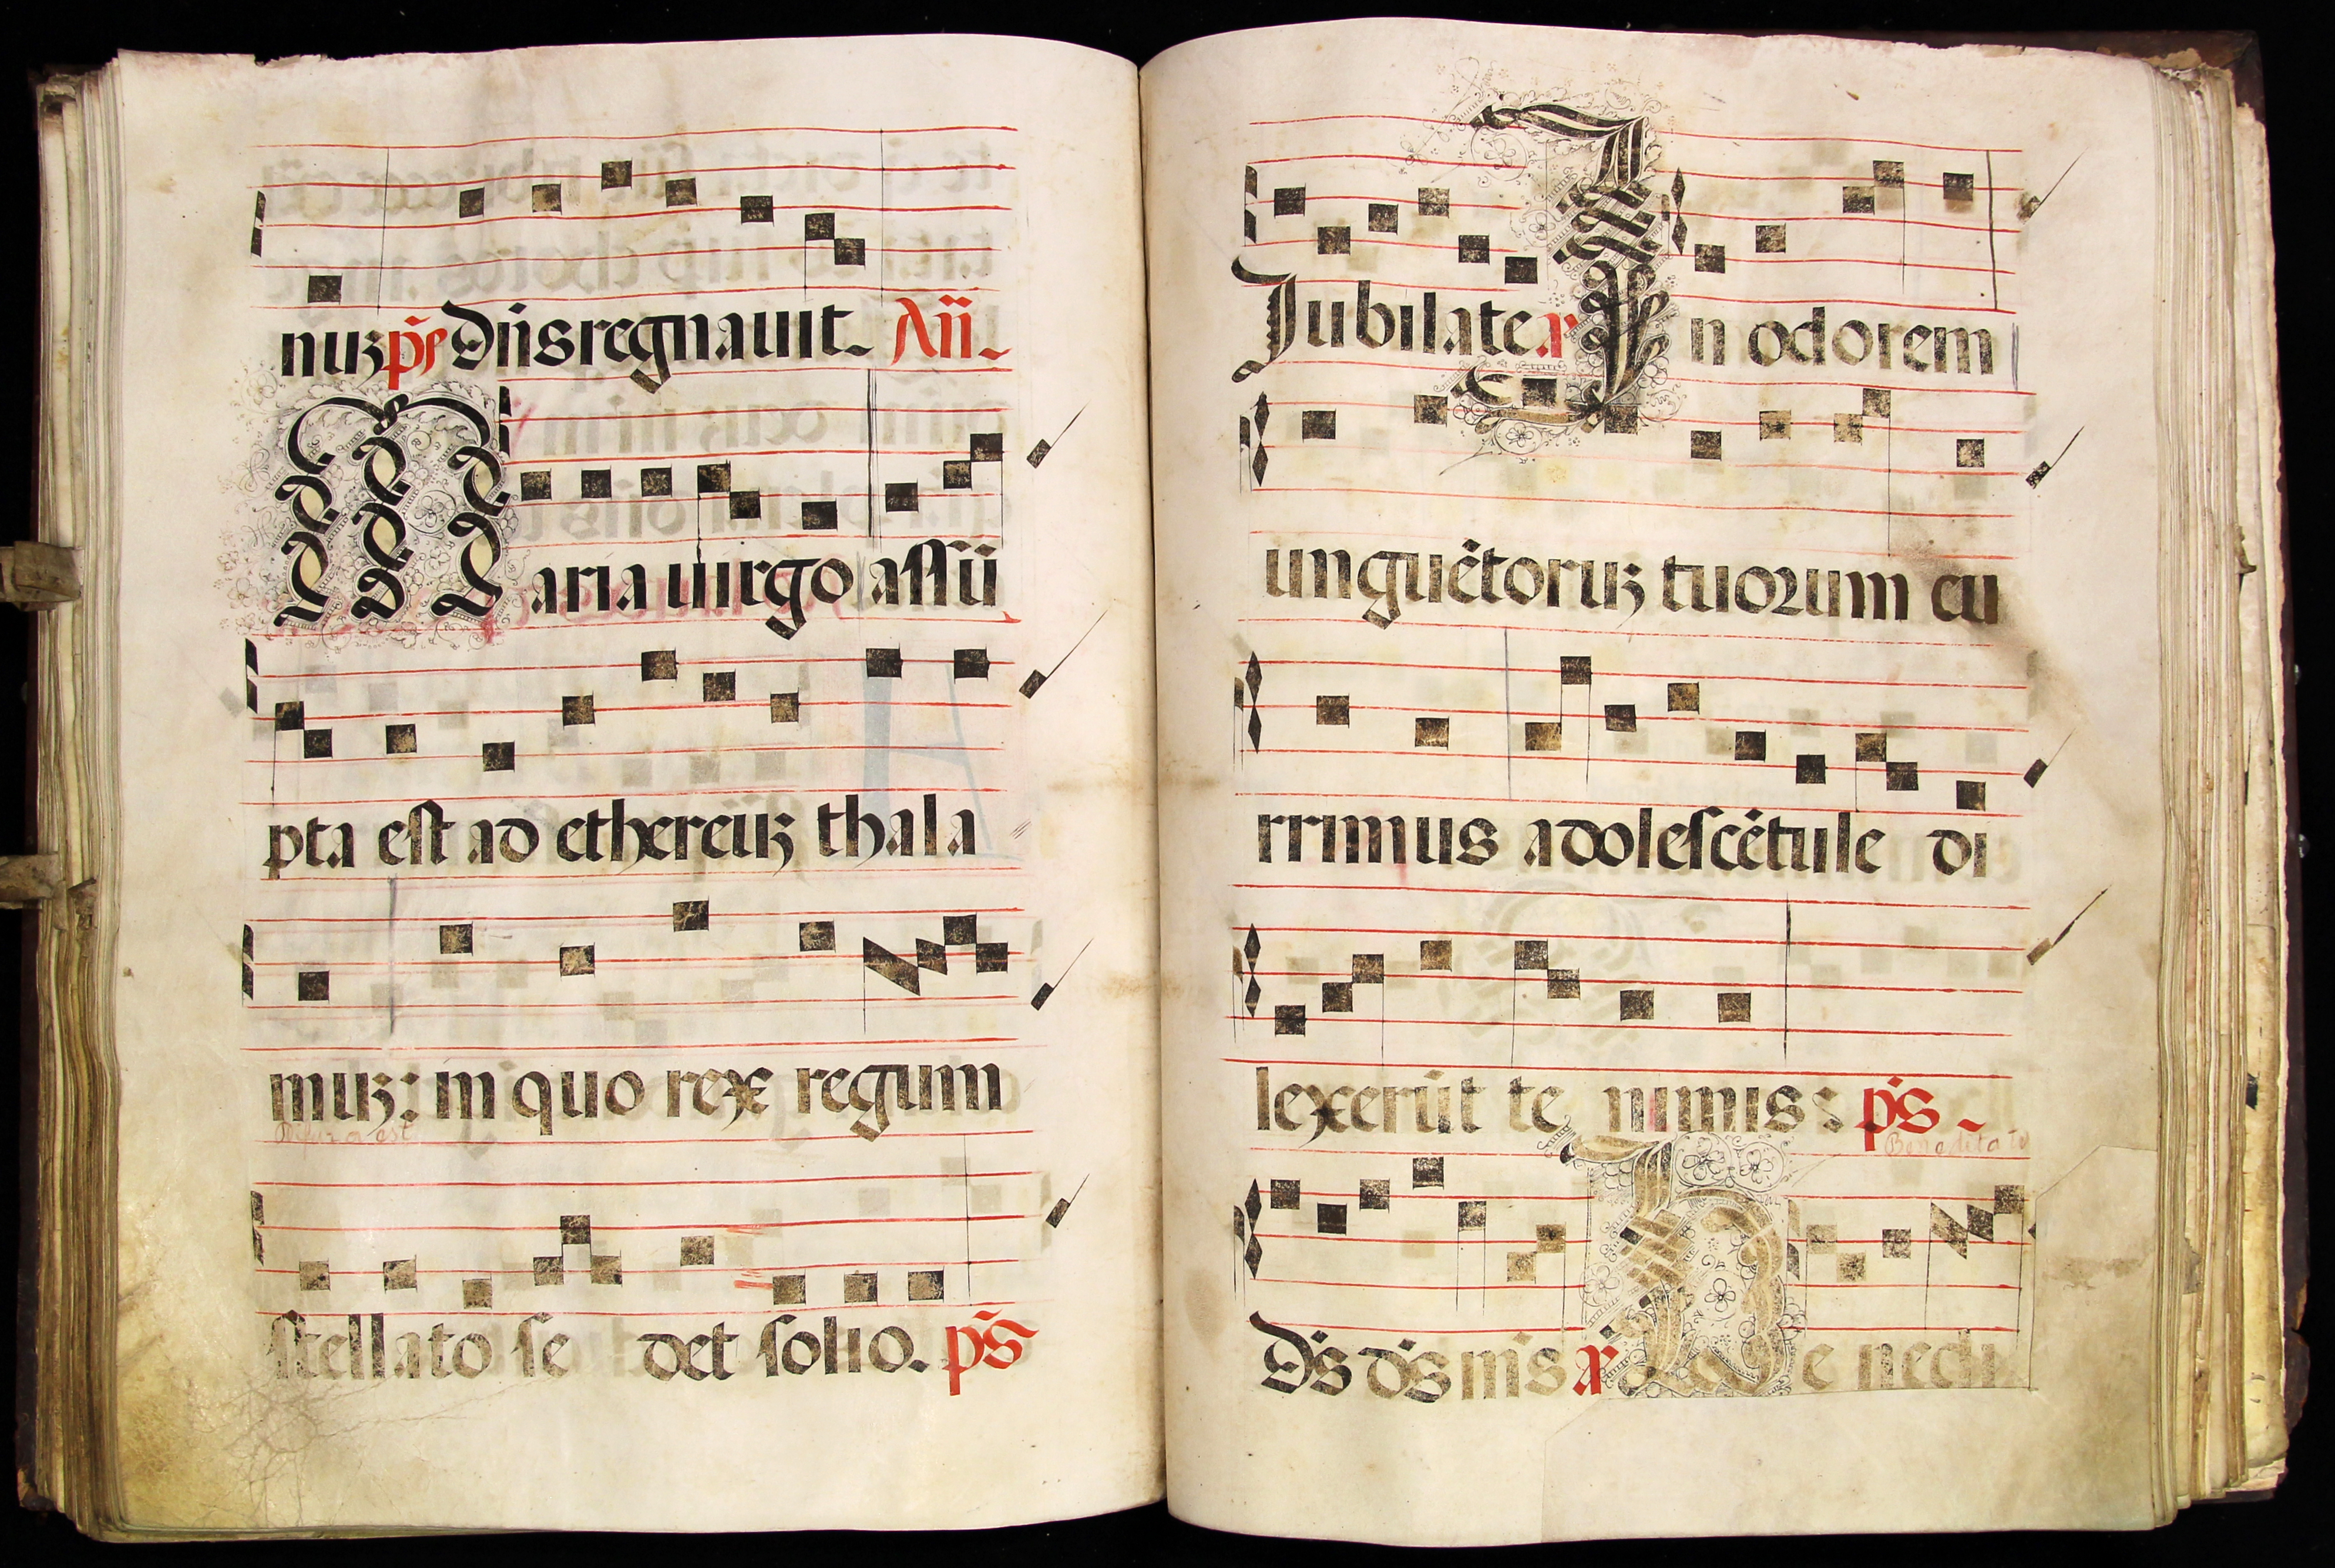 nuʒ p̃s Dn̄s regnauit. Añ.
Maria uirgo assũ
pta est ad ethereuʒ thala
muʒ: in quo rex regum
stellato se det solio. p̃s
Jubilate a In odorem
unguẽtoruʒ tuorum cu
rrimus adolescẽtule di
lexerũt te nimis: p̃s.
Benedita
D̃s d̃s m̃s a Be nedi